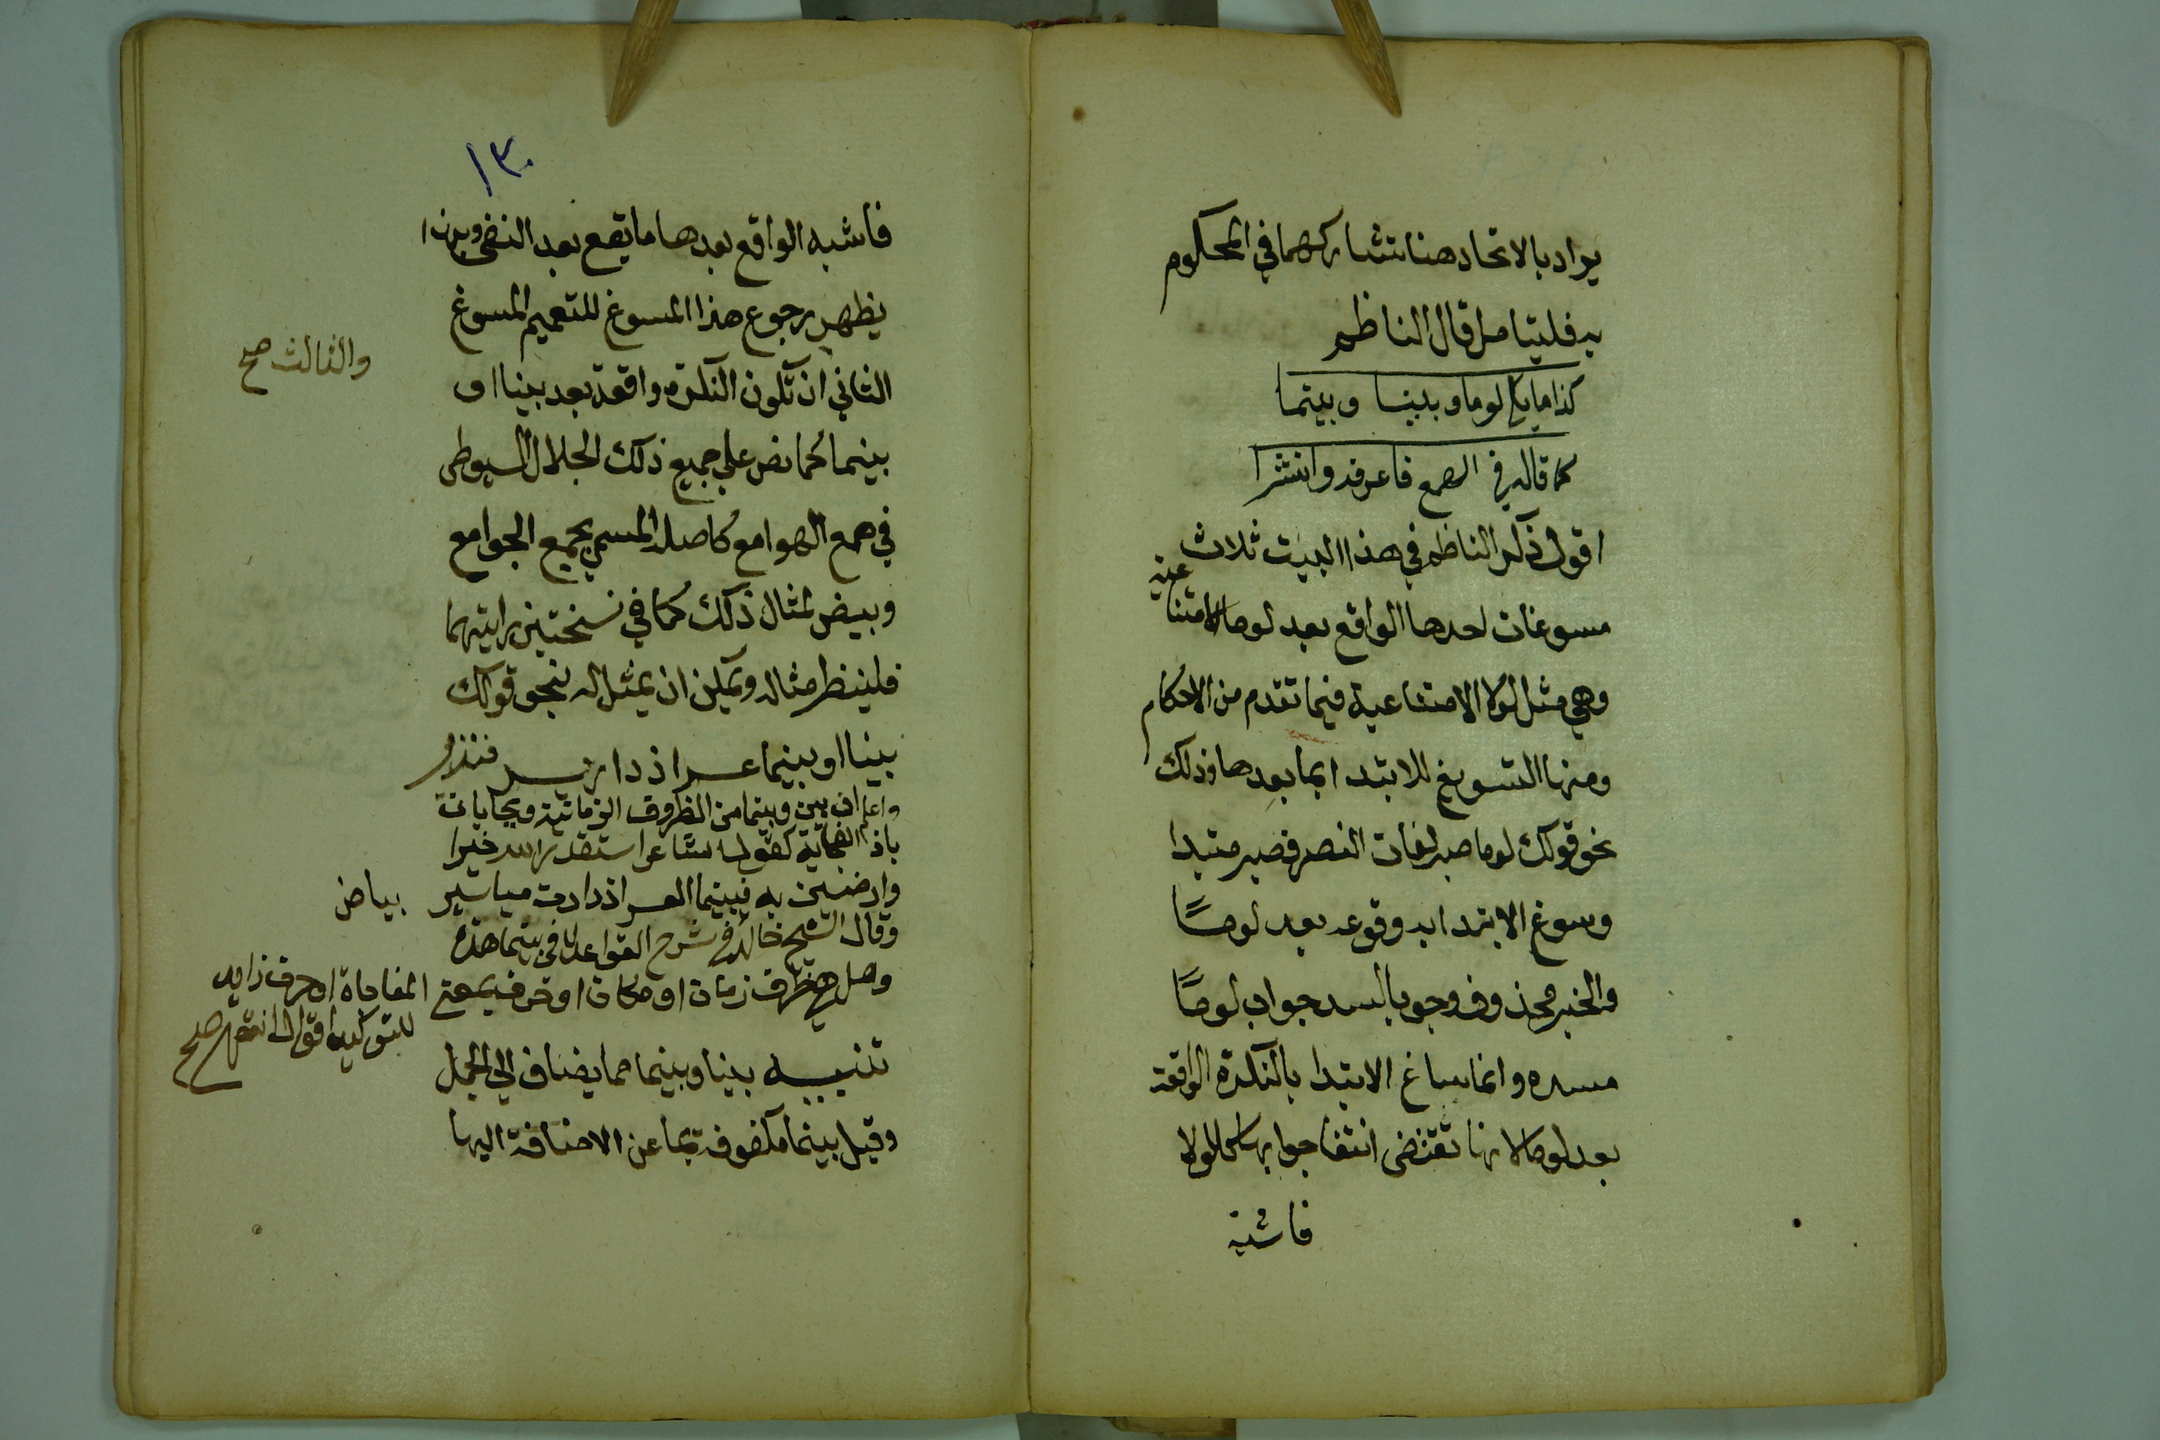 يراد بالاتحاد هنا تشاركهما في المحكوم
به فليتامل قال الناظم
كذا ما يلي لوما وبينا وبينما
كما قاله في الهمع فاعرفه وانتشرا
اقول ذكر الناظم في هذا البيت ثلاث
مسوغات احدها الواقع بعد لوما الامتناعية
وهي مثل لولا الامتناعية فيما تقدم من الاحكام
ومنها التسويغ للابتدا بما بعدها وذلك
نحو قولك لوما صبر لفات النصر فصبر مبتدا
وسوغ الابتدا به وقوعه بعد لوما
والخبر محذوف وجوبا لسد جواب لوما
مسده وانما ساغ الابتدا بالنكرة الواقعة
بعد لوما لانها تقتضي انتفا جوابها كلولا
فاشبه
١٣٠
فاشبه الواقع بعدها ما يقع بعد النفي وبهذا
يظهر رجوع هذا المسوغ للتعميم المسوغ
الثاني والثالث صح ان تكون النكرة واقعة بعد بينا او
بينما كما نص علي جميع ذلك الجلال السيوطي
في همع الهوامع كاصله المسمي بجمع الجوامع
وبيض لمثال ذلك كما في نسختين رايتهما
فلينظر مثاله ويمكن ان يمثل له بنحو قولك
بينا او بينما عسر اذ دار يسر فتذكر
واعلم ان بين وبينما من الظروف الزمانية ويجابان
باذ الفجائية كقوله شاعر استقدر الله خيرا
وارضين به فبينما العسر اذ دارت مياسير بياض
وقال الشيخ خالد في شرح القواعد في بينما هذه
وهل هي ظرف زمان او مكان او حرف بمعني المفاجاة او حرف زايد
للتوكيد اقوال انتهي صح
تنبيه بينا وبينما مما يضاف الي الجمل
وقيل بينما مكفوفة بما عن الاضافة اليها